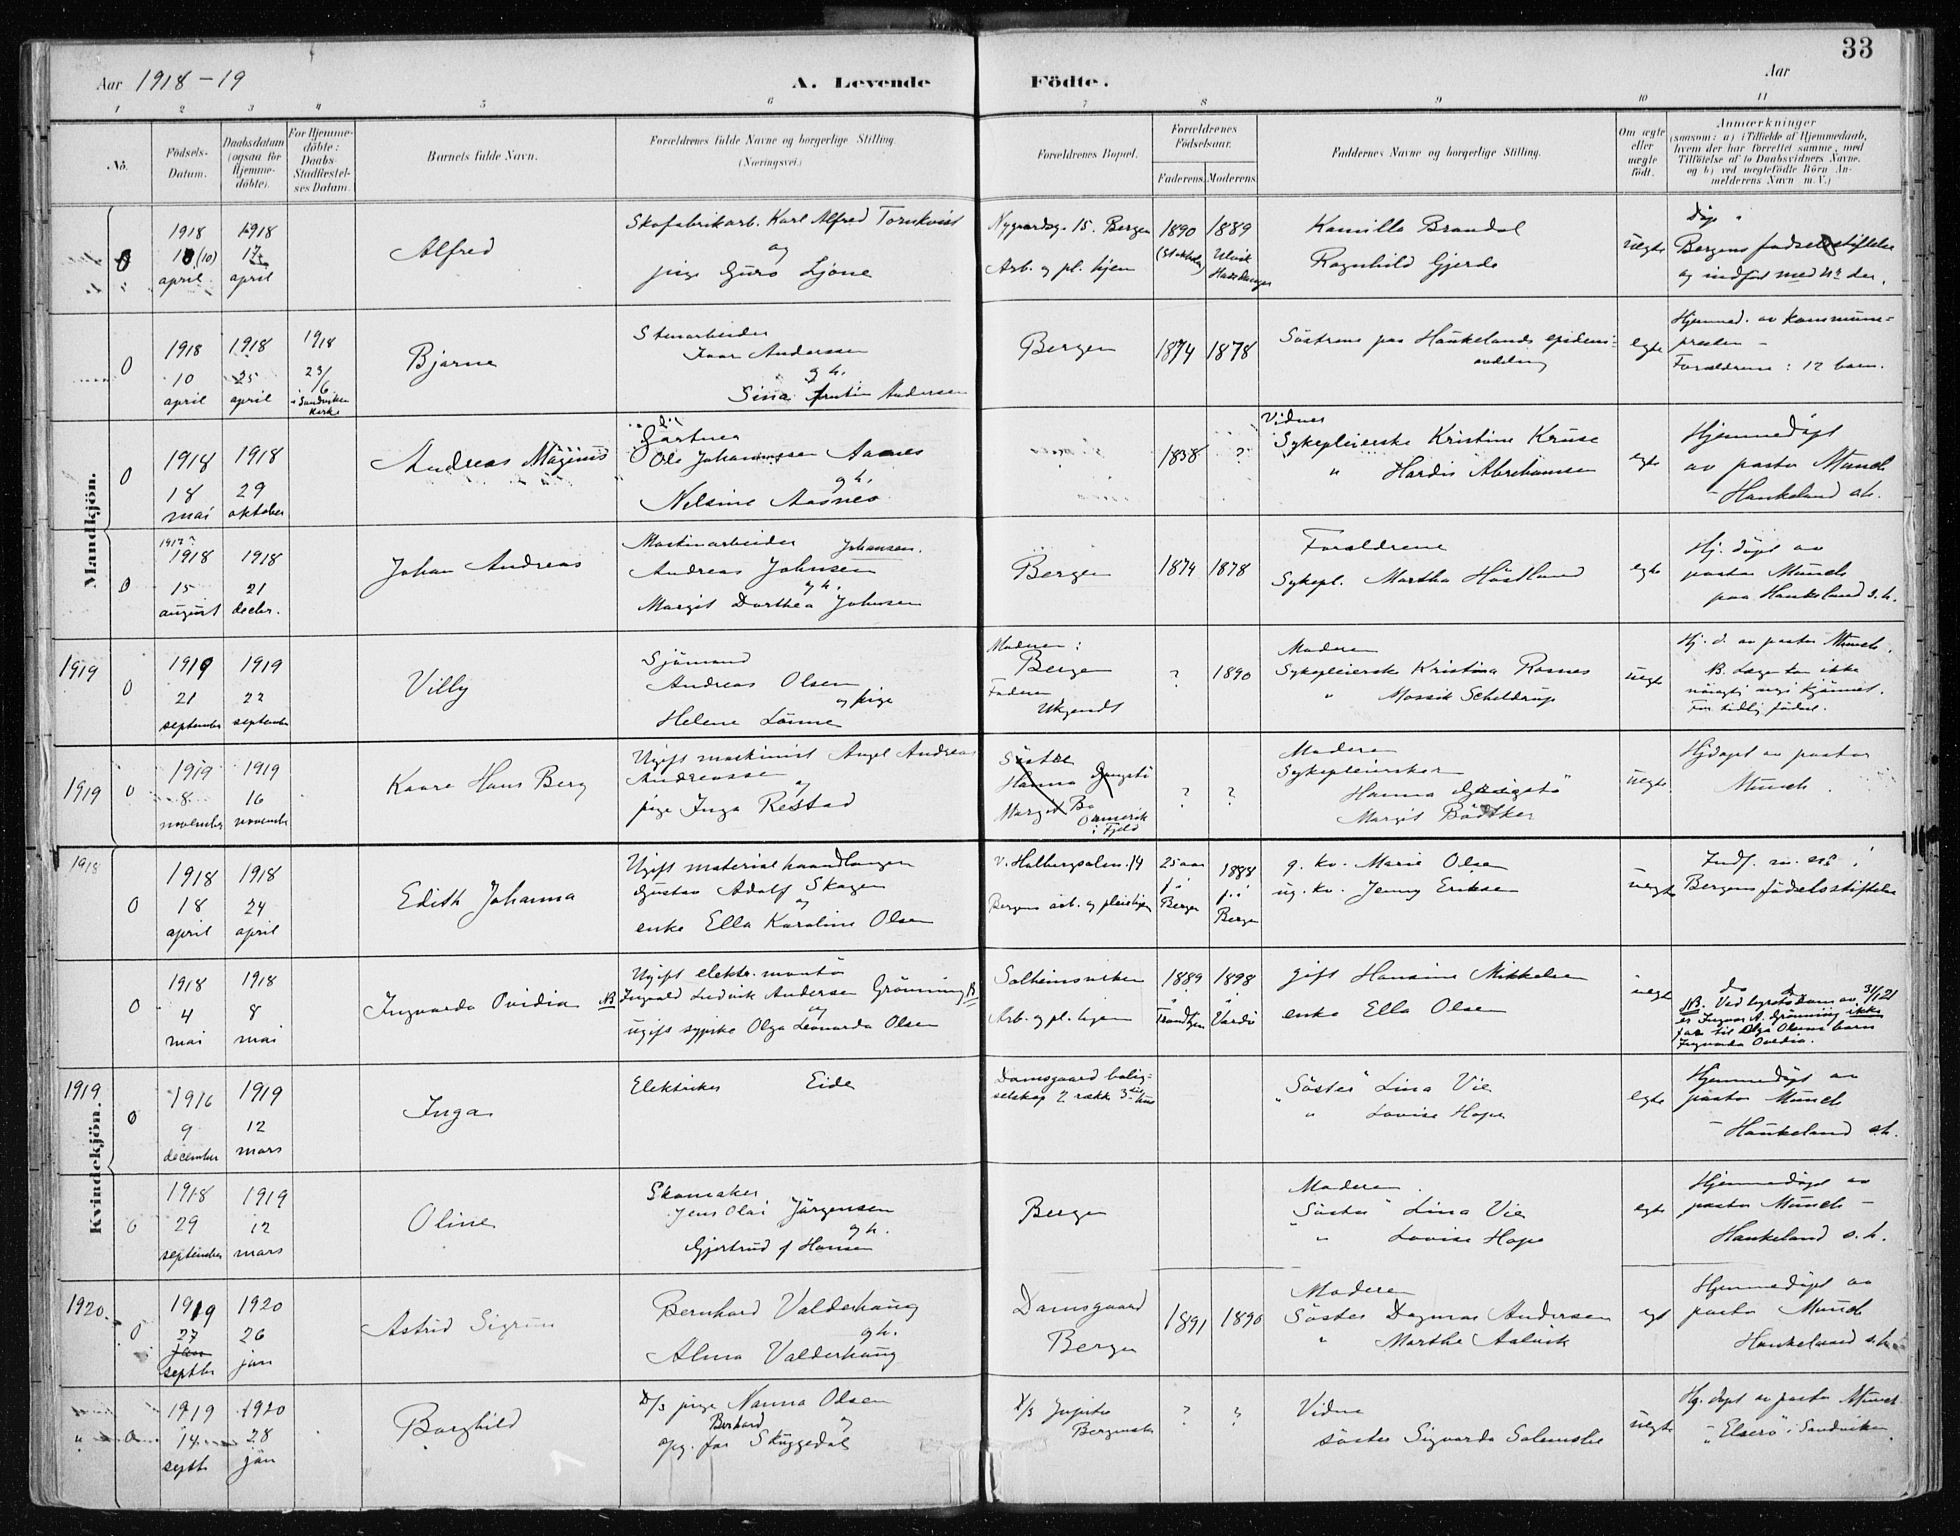 33
Aar 1918-19
A. Levende
Födte.
Aar
1 2 3 4 5 6 7 8 9 10 11
No.
Födsels-
Datum.
Daabsdatum
(ogsaa for
Hjemme-
döbte).
For Hjemme-
döbte:
Daabs-
Stadfæstel-
ses Datum.
Barnets fulde Navn.
Forældrenes fulde Navne og borgerlige Stilling
(Næringsvei.)
Forældrenes Bopæl.
Forældrenes
Födselsaar.
Faderens. Moderens.
Faddernes Navne og borgerlige Stilling.
Om ægte
eller
uægte
födt.
Anmærkninger
(saasom: a) i Tilfælde af Hjemmedaab,
hvem der har forrettet samme, med
Tilföielse af to Daabsvidners Navne,
og b) ved uægtefödte Börn An-
melderens Navn m. V.)
Mandkjön.
0
1918
(10)
april
1918
17
april
Alfred
Skofabrikarb. Karl Alfred Tornkvist
og
pige Guro Ljöne
Nygaardsg. 15. Bergen
Arb. og pl. hjem
1890
1889
Ulvik
Hardanger
Kamilla Brandal
Ragnhild Gjerde
uegte
Bergens fødselsstiftelse
og indført med nr der.
0
1918
10
april
1918
25
april
1918
23/6
i Sandviken
Kirke
Bjarne
Stenarbeider
Ivar Anderssen
g h.
Sina Andersen
Bergen
1874
1878
Söstrene paa Haukelands epidemi-
avdeling
egte
Hjemmed. av kommune-
presten -
Forældrene: 12 barn.
0
1918
18
mai
1918
29
oktober
Andreas Magnus
Gartner
Ole Johannessen Aasnes
g h.
Nelsine Aasnes
1838
?
Vidner
Sykepleierske Kristine Kruse
" Hardis Abrahamsen
egte
Hjemmedöpt
av pastor Munch
- Haukeland s.h.
0
1917?
1918
15
august
1918
21
decbr.
Johan Andreas
Maskinarbeider Johansen.
Andreas Johnsen
g h.
Margit Dorthea Johnsen
Bergen
1874
1878
Forældrene
Sykepl. Martha Höstland
egte
Hj. döpt av
pastor Munch
paa Haukeland s.h.
1919
0
1919
21
september
1919
22
september
Villy
Sjömand
Andreas Olsen
og pige
Helene Lönne
Moderen:
Bergen
Faderen
Ukjendt
?
1890
Moderen
Sykepleierske Kristina Rosnes
" Schieldrup
uegte
Hj. d. av pastor Munch.
NB. Lægen kan ikke
kjönnet.
For tidlig födsel.
1919
0
1919
8
november
1919
16
november
Kaare Hans Berg
Ugift maskinist Angel Andreas
Andreassen
og
pige Inga Restad
Söster
Hanna
Margit Bö
i Fjeld
?
?
Moderen
Sykepleiersker
Hanna
Margit Bödtker
uegte
Hjdöpt av pastor
Munch.
Kvindekjön.
1918
0
1918
18
april
1918
24
april
Edith Johanna
Ugift materialhaandlanger
Gustav Adolf Skagen
og
enke Ella Karoline Olsen
v. Holbergsalm. 14
Bergens arb. og pleiehjem
25 aar
Bergen
1888
Bergen
g. kv. Marie Olsen
ug. kv. Jenny Eriksen
uegte
Indf. m.
Bergens födselsstiftelse
0
1918
4
mai
1918
8
mai
Ingvarda Ovidia NB
Ugift elektr. montör
Ingvald Ludvik Andersen Grönning NB
og
ugift sypike Olga Leonarda Olsen
Solheimsviken
Arb. og pl. hjem
1889
Trondhjem
1898
Vardö
gift Hansine Mikkelsen
enke Ella Olsen
uegte
do do
NB. Ved lagrettsdom av 31/1 21
er Ingvar A. Grönning ikke
far til Olga Olsens barn
Ingvarda Ovidia.
1919
0
1916
9
december
1919
12
mars
Inga
Elektriker Eide
Damsgaard bolig-
selskap 2 række 3die hus
"Söster" Lina Vie
" Lovise Hope
egte
Hjemmedöpt av
pastor Munch
- Haukeland s.h.
0
1918
29
september
1919
12
mars
Oline
Skomaker
Jens Olai Jörgensen
g h.
Gjertrud f Hansen
Bergen
Moderen.
"Söster" Lina Vie
" Lovise Hope
egte
Hjemmedöpt av
pastor Munch -
Haukeland s.h.
1920
0
1919
27
jan
septbr
1920
26
jan
Astrid Sigrun
Bernhard Valderhaug
g h.
Alma Valderhaug
Damsgaard
Bergen
1891
1890
Moderen
Söster Dagmar Andersen
" Marthe Aalvik
egt
Hjemmedöpt av
pastor Munch
Haukeland s.h.
"
0
1919
14
septb
1920
28
jan
Borghild
D/s pige Nanna Olsen
og
Bernhard
opg. far Skuggedal
D/s Jupiter
Bergenske
?
?
Vidne
söster Sigvarda Solemslie
uegte
Hj. döpt av pastor Munch
"Elserö" i Sandviken.